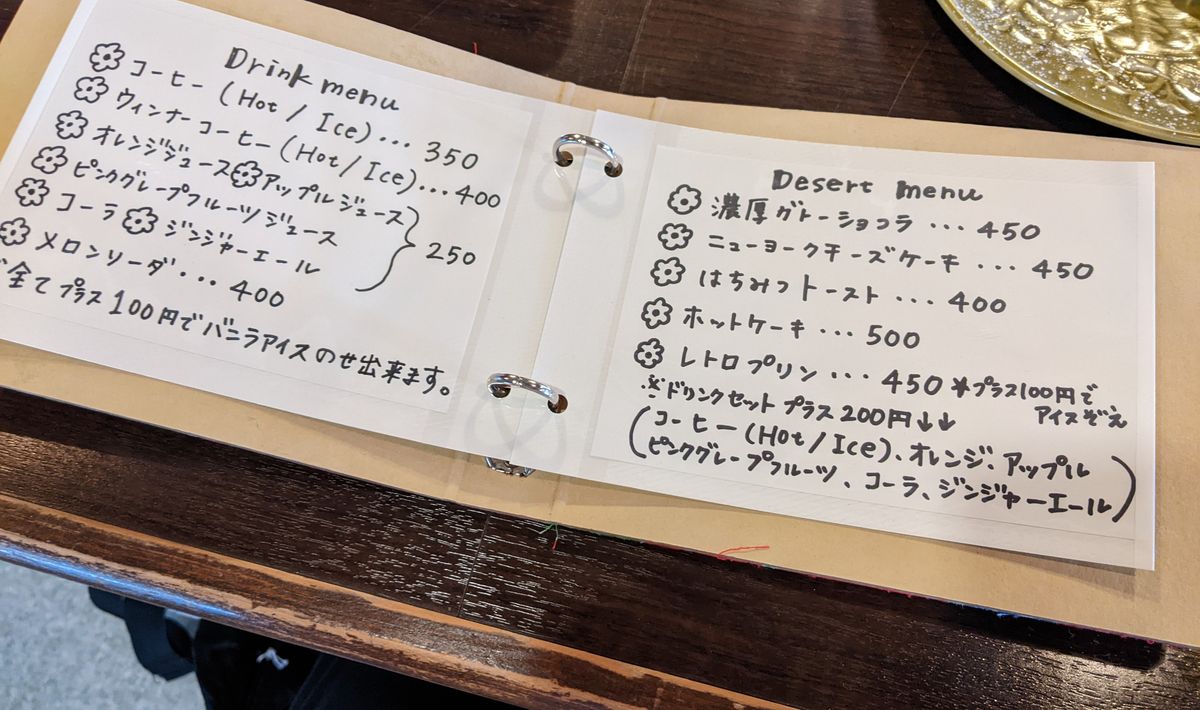 Drink menu
コーヒー (Hot / Ice)... 350
ウィンナーコーヒー (Hot / Ice)...400
オレンジジュース アップルジュース
ピンクグレープフルーツジュース
250
コーラ ジンジャーエール
メロンソーダ... 400
全てプラス100円でバニラアイスのせ出来ます。
Desert menu
濃厚ガトーショコラ ... 450
ニューヨークチーズケーキ ... 450
はちみつトースト ... 400
ホットケーキ ... 500
レトロプリン ... 450 ※プラス100円で
アイスぞえ
※ドリンクセット プラス200円↓↓
(コーヒー(Hot / Ice)、オレンジ、アップル
ピンクグレープフルーツ、コーラ、ジンジャーエール)